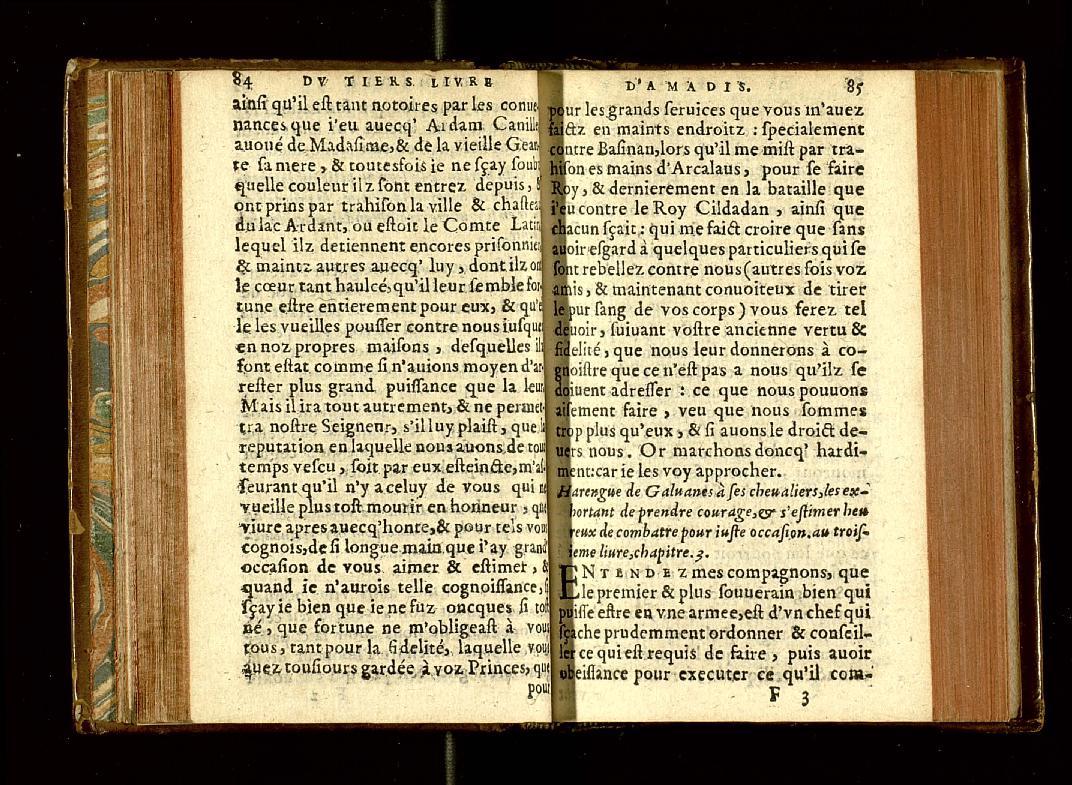 84 DV TIERS LIVRE
ainſi qu'il eſt tant notoires par les conue-
nances que i'eu auecq' Ardam Canille
auoué de Madaſime, & de la vieille Gean-
te ſa mere, & toutesfois ie ne ſçay ſoubz
quelle couleur ilz ſont entrez depuis, &
ont prins par trahiſon la ville & chaſteau
du lac Ardant, ou eſtoit le Comte Latin,
lequel ilz detiennent encores priſonnier,
& maintz autres auecq' luy, dont ilz ont
le cœur tant haulcé, qu'il leur ſemble for-
tune eſtre entierement pour eux, & qu'el
le les vueilles pouſſer contre nous iuſques
en noz propres maiſons, deſquelles ilz
font eſtat comme ſi n'auions moyen d'ar-
reſter plus grand puiſſance que la leur.
Mais il ira tout autrement, & ne permet-
tra noſtre Seigneur, s'il luy plaiſt, que la
reputation en laquelle nous auons de tout
temps veſcu, ſoit par eux eſteincte, m'aſ-
ſeurant qu'il n'y a celuy de vous qui ne
vueille plus toſt mourir en honneur, que
viure apres auecq' honte, & pour tels vous
cognois, de ſi longue main que i'ay grand'
occaſion de vous aimer & eſtimer, &
quand ie n'aurois telle cognoiſſance, ſi
ſçay ie bien que ie ne fuz oncques ſi toſt
né, que fortune ne m'obligeaſt à vous
tous, tant pour la fidelité, laquelle vous
auez touſiours gardée à voz Princes, que
pour
D'AMADIS. 85
pour les grands ſeruices que vous m'auez
faictz en maints endroitz : ſpecialement
contre Baſinan, lors qu'il me miſt par tra-
hiſon es mains d'Arcalaus, pour ſe faire
Roy, & dernierement en la bataille que
i'eu contre le Roy Cildadan, ainſi que
chacun ſçait : qui me faict croire que ſans
auoir eſgard à quelques particuliers qui ſe
ſont rebellez contre nous (autres fois voz
amis, & maintenant conuoiteux de tirer
le pur ſang de vos corps) vous ferez tel
deuoir, ſuiuant voſtre ancienne vertu &
fidelité, que nous leur donnerons à co-
gnoiſtre que ce n'eſt pas a nous qu'ilz ſe
doiuent adreſſer : ce que nous pouuons
aiſement faire, veu que nous ſommes
trop plus qu'eux, & ſi auons le droict de-
uers nous. Or marchons doncq' hardi-
ment: car ie les voy approcher.
Harengue de Galuanes à ſes cheualiers, les ex-
hortant de prendre courage, & s'eſtimer heu
reux de combatre pour iuſte occaſion. au troiſ-
ieme liure, chapitre. 3.
ENTENDEZ mes compagnons, que
le premier & plus ſouuerain bien qui
puiſſe eſtre en vne armee, eſt d'vn chef qui
ſçache prudemment ordonner & conſeil-
ler ce qui eſt requis de faire, puis auoir
obeiſſance pour executer ce qu'il com-
F 3